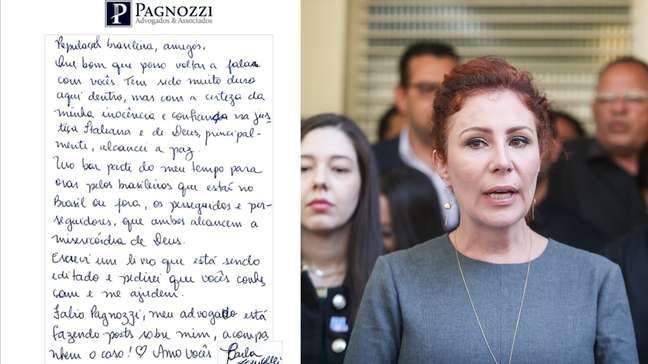 P
PAGNOZZI
Advogados & Associados
População brasileira, amigos,
Que bom que posso voltar a falar
com vocês. Tem sido muito duro
aqui dentro, mas com a certeza da
minha inocência e confiança na jus-
tiça Italiana e de Deus, principal-
mente, alcancei a paz.
Uso boa parte do meu tempo para
orar pelos brasileiros que está no
Brasil ou fora, os perseguidos e per-
seguidores, que ambos alcancem a
misericórdia de Deus.
Escrevi um livro que está sendo
editado e pedirei que vocês conhe
çam e me ajudem.
Fabio Pagnozzi, meu advogado está
fazendo posts sobre mim, acompa
nhem o caso! ♡ Amo vocês